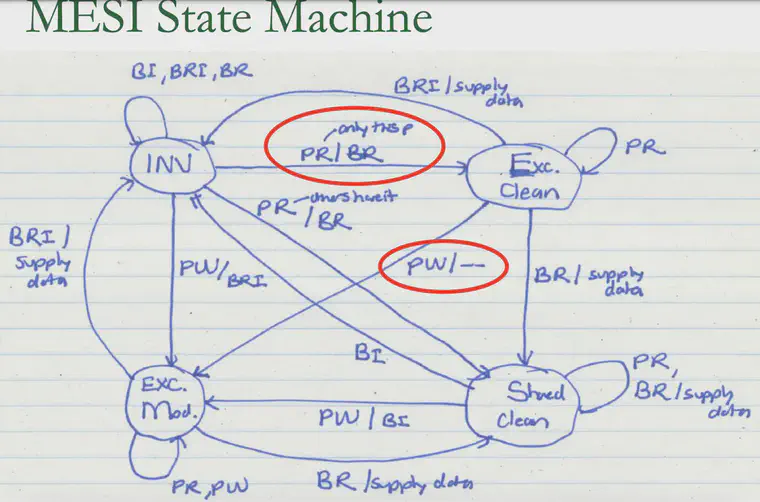 MESI State Machine
BI, BRI, BR
BRI/supply
data
only this p
PR/BR
INV
Exc.
Clean
PR
PR
others have it
/BR
BRI/
supply
data
PW/BRI
PW/—
BR/supply
data
BI
Exc.
Mod.
PW/BI
Shared
Clean
PR,
BR/supply
data
PR, PW
BR/supply data